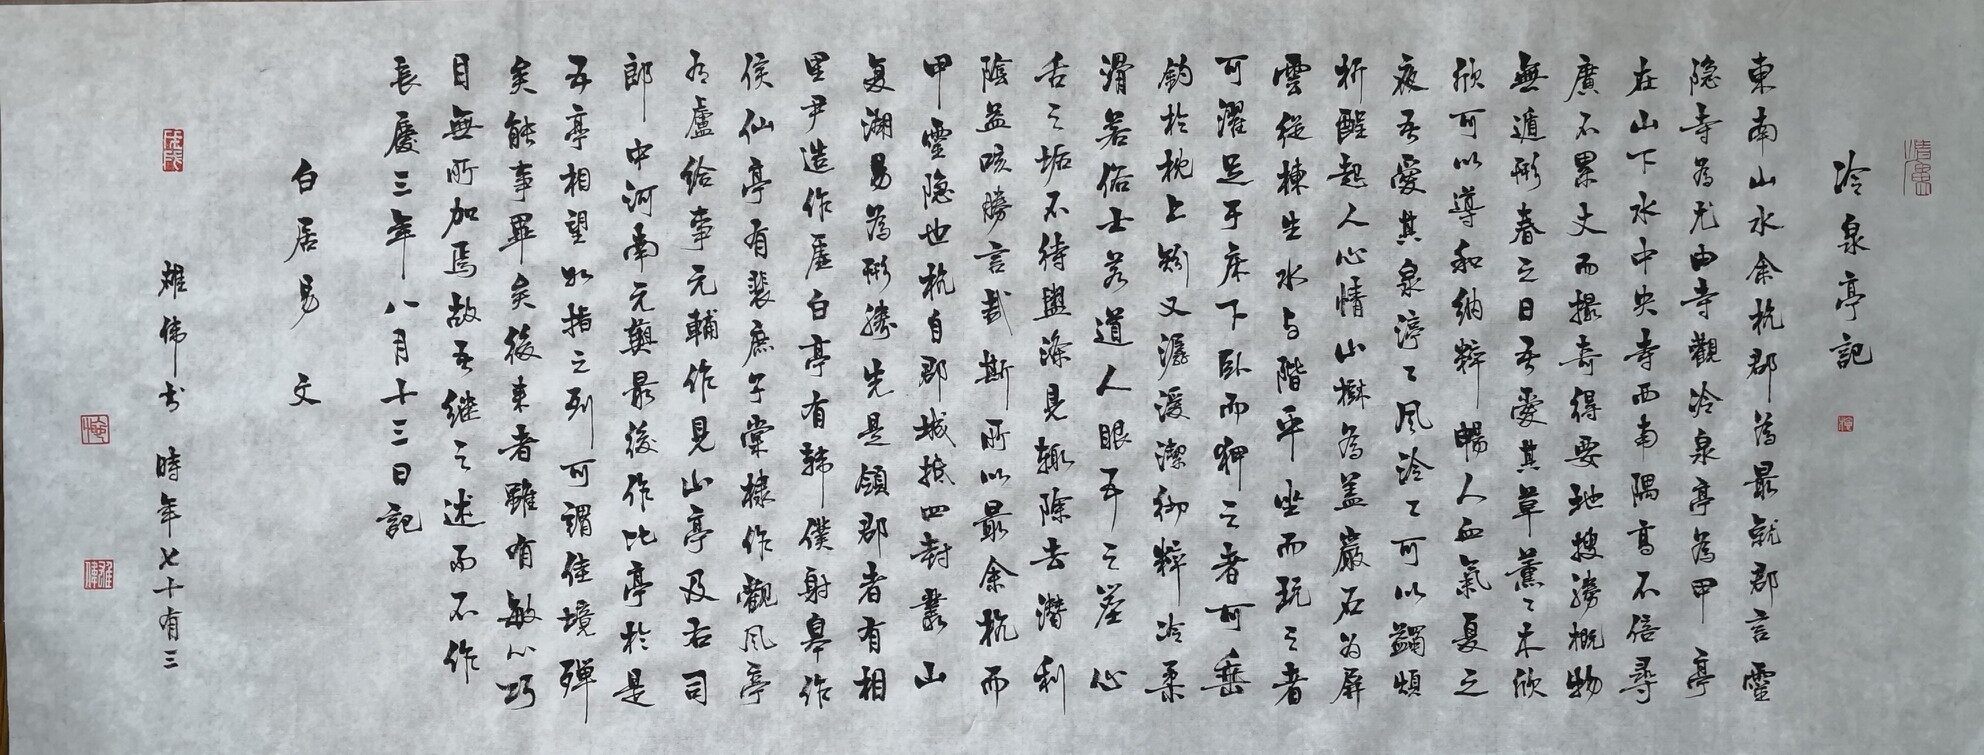 冷泉亭記
東南山水余杭郡為最就郡言靈
隐寺為尤由寺觀冷泉亭為甲亭
在山下水中央寺西南隅高不倍尋
廣不累丈而撮奇得要地搜勝概物
無遁形春之日吾愛其草薰〻木欣
欣可以導和納粹暢人血氣夏之
夜吾愛其泉渟〻風泠〻可以蠲煩
析酲起人心情山樹為蓋巖石為屏
雲從棟生水与階平坐而玩之者
可濯足于床下卧而狎之者可垂
釣於枕上矧又潺湲潔沏粹冷柔
滑若俗士若道人眼耳之塵心
舌之垢不待盥滌見輒除去潛利
陰益可勝言哉斯所以最余杭而
甲靈隐也杭自郡城抵四封叢山
复湖易為形勝先是領郡者有相
里尹造作虛白亭有韩僕射皋作
侯仙亭有裴庶子棠棣作觀风亭
有盧给事元輔作見山亭及右司
郎中河南元藇最後作此亭於是
五亭相望如指之列可謂佳境殫
矣能事畢矣後来者雖有敏心巧
目無所加焉故吾继之述而不作
長慶三年八月十三日記
白居易文
雄偉书 時年七十有三